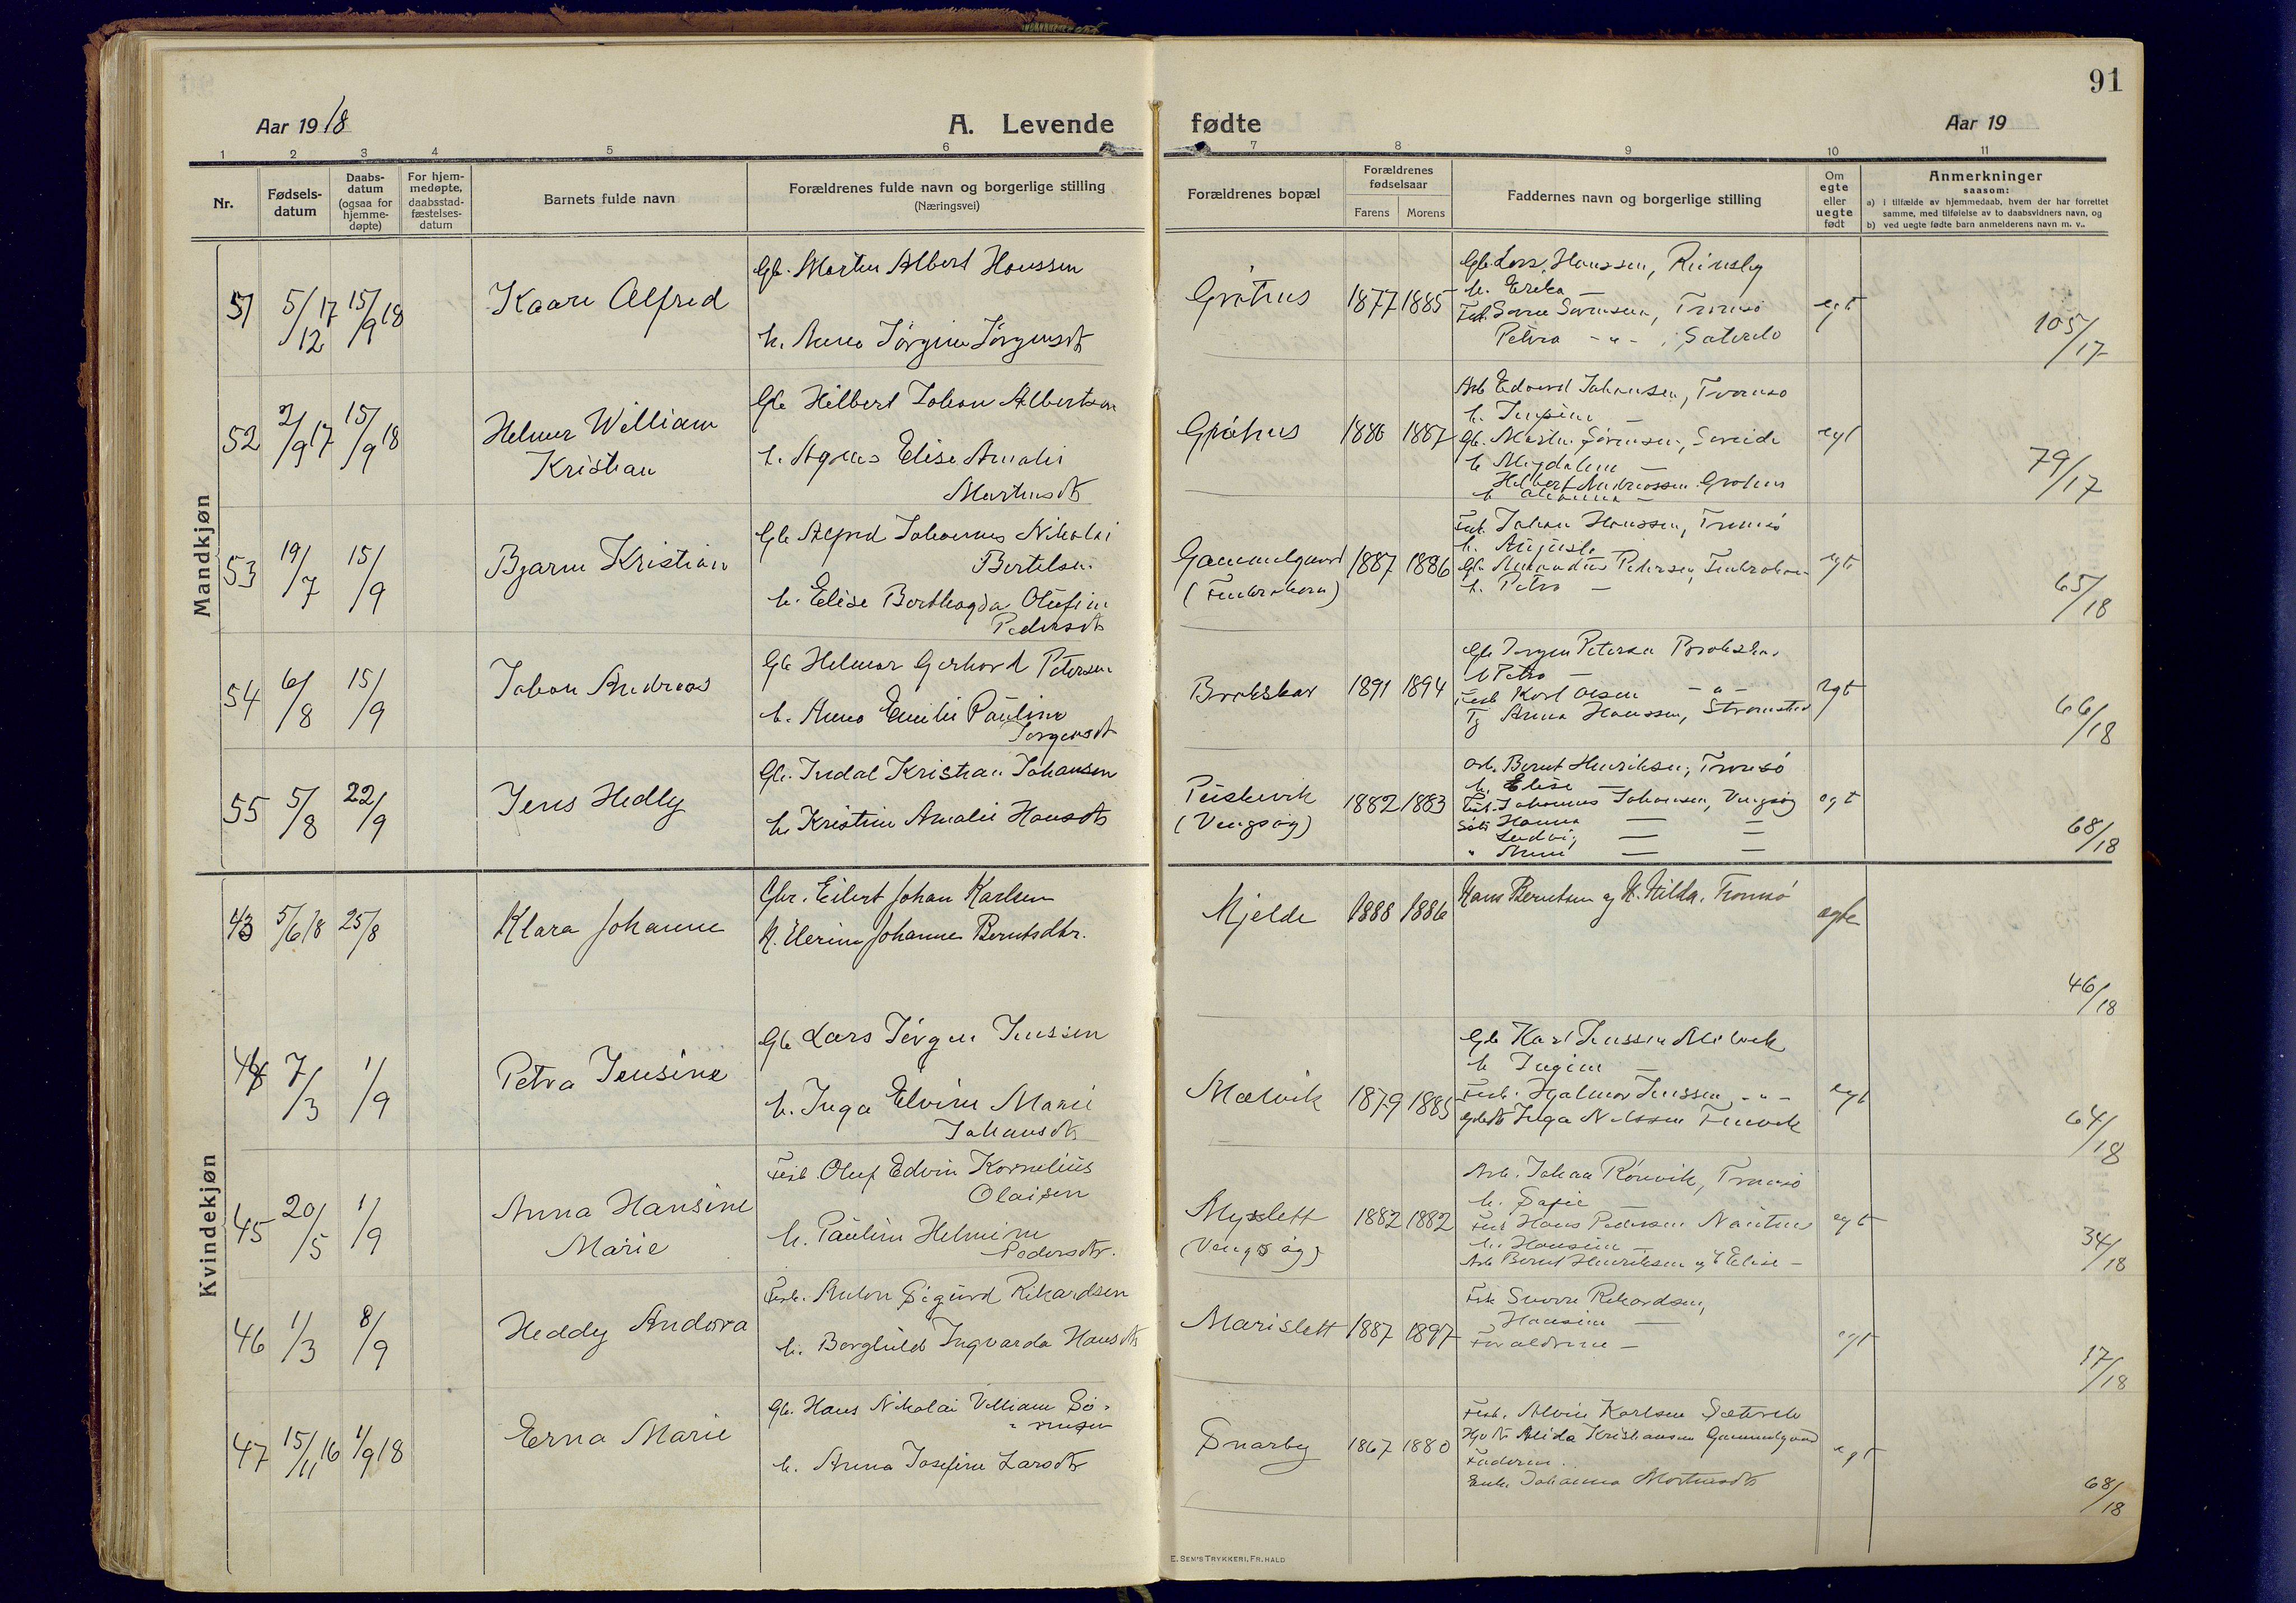 91
Aar 1918
A. Levende fødte
Aar 19
1 2 3 4 5 6 7 8 9 10 11
Nr.
Fødsels-
datum
Daabs-
datum
(ogsaa for
hjemme-
døpte)
For hjem-
medøpte,
daabsstad-
fæstelses-
datum
Barnets fulde navn
Forældrenes fulde navn og borgerlige stilling
(Næringsvei)
Forældrenes bopæl
Forældrenes
fødselsaar
Farens
Morens
Faddernes navn og borgerlige stilling
Om
egte
eller
uegte
født
Anmerkninger
saasom:
a) i tilfælde av hjemmedaab, hvem der har forrettet
samme, med tilføielse av to daabsvidners navn, og
b) ved uegte fødte barn anmelderens navn m. v..
Mandkjøn
51 5/12 17 15/9 18
Kaare Alfred
Gb. Martin Albert Hanssen
h. Anna Jørgine Jørgensdt
Gråhus
1877 1885
Gb. Lars Hanssen,
h. Erika —
Fisk. Sørensen, Tromsø
Petra - " -,
egt
105/17
52 2/9 17 15/9 18
Helmer William
Kristian
Gb Hilbert Johan Albertsen
h. Agnes Elise Amalie
Martinsdt
Gråhus
1886 1887
Arb Edvard Johansen, Tromsø
h. —
Gb. Martin Sørensen,
h Magdalene —
Hilbert Andreassen Gråhus
h —
egt
79/17
53 19/7 15/9
Bjarne Kristian
Gb Alfred Johannes Nikolai
Bertelsen
h. Elise Olufine
Pedersdt
Gammelgaard
1887 1886
Fisk. Johan Hanssen, Tromsø
h. Augusta
Gb. Pedersen,
h. Petra —
egt
65/18
54 6/8 15/9
Johan Andreas
Gb Helmer Gerhard Petersen
h. Anna Emilie Pauline
Jørgensdt
Brokskar
1891 1894
Gb Jørgen Petersen Brokskar
h Petra —
Fisk Karl Olsen - " -
Anna Hanssen,
egt
66/18
55 5/8 22/9
Jens Hedly
Gb. Indal Kristian Johansen
h. Kristine Amalie Hansdt
(Vengsøy)
1882 1883
Arb. Bernt Henriksen, Tromsø
h. Elise —
Fisk. Johannes Johansen, Vengsøy
Hanna — —
Ludvig — —
" — —
egt
68/18
Kvindekjøn
43 5/6 18 25/8
Klara Johanne
Gbr. Eilert Johan Karlsen
H. Elerine Johanne Berntsdtr.
Mjelde
1888 1886
Hans Berntsen og H. Hilda, Tromsø
egte
46/18
44 7/3 1/9
Petra Jensine
Gb Lars Jørgen Jenssen
h. Inga Elvine Marie
Johansdt
Mælvik
1879 1885
Gb Karl Jenssen Mælvik
h —
Fisk. Hjalmar Jenssen - " -
Inga Nilssen Finvik
egt
64/18
45 20/5 1/9
Anna Hansine
Marie
Fisk. Oluf Edvin Kornelius
Olaisen
h. Pauline Helmine
Pedersdt.
Myslett
(Vengsøy)
1882 1882
Arb. Johan Rønvik, Tromsø
h. —
Fisk Hans Pedersen
h. Hansine —
Arb Bernt Henriksen og h Elise —
egt
34/18
46 1/3 8/9
Heddy Andora
Fisk. Anton Sigurd Rikardsen
h. Borghild Ingvarda Hansdt
Marislett
1887 1897
Fisk Rikardsen,
Hansine —
Forældrene —
egt
17/18
47 15/11 16 1/9 18
Erna Marie
Gb. Hans Nikolai Villiam Sø-
rensen
h. Anna Josefine Larsdt
Snarby
1867 1880
Fisk. Alvin Karlsen
Alida Kristiansen Gammelgaard
Faderen.
Enke Johanna Mortensdt
egt
68/18
E. SEM'S TRYKKERI, FR.HALD